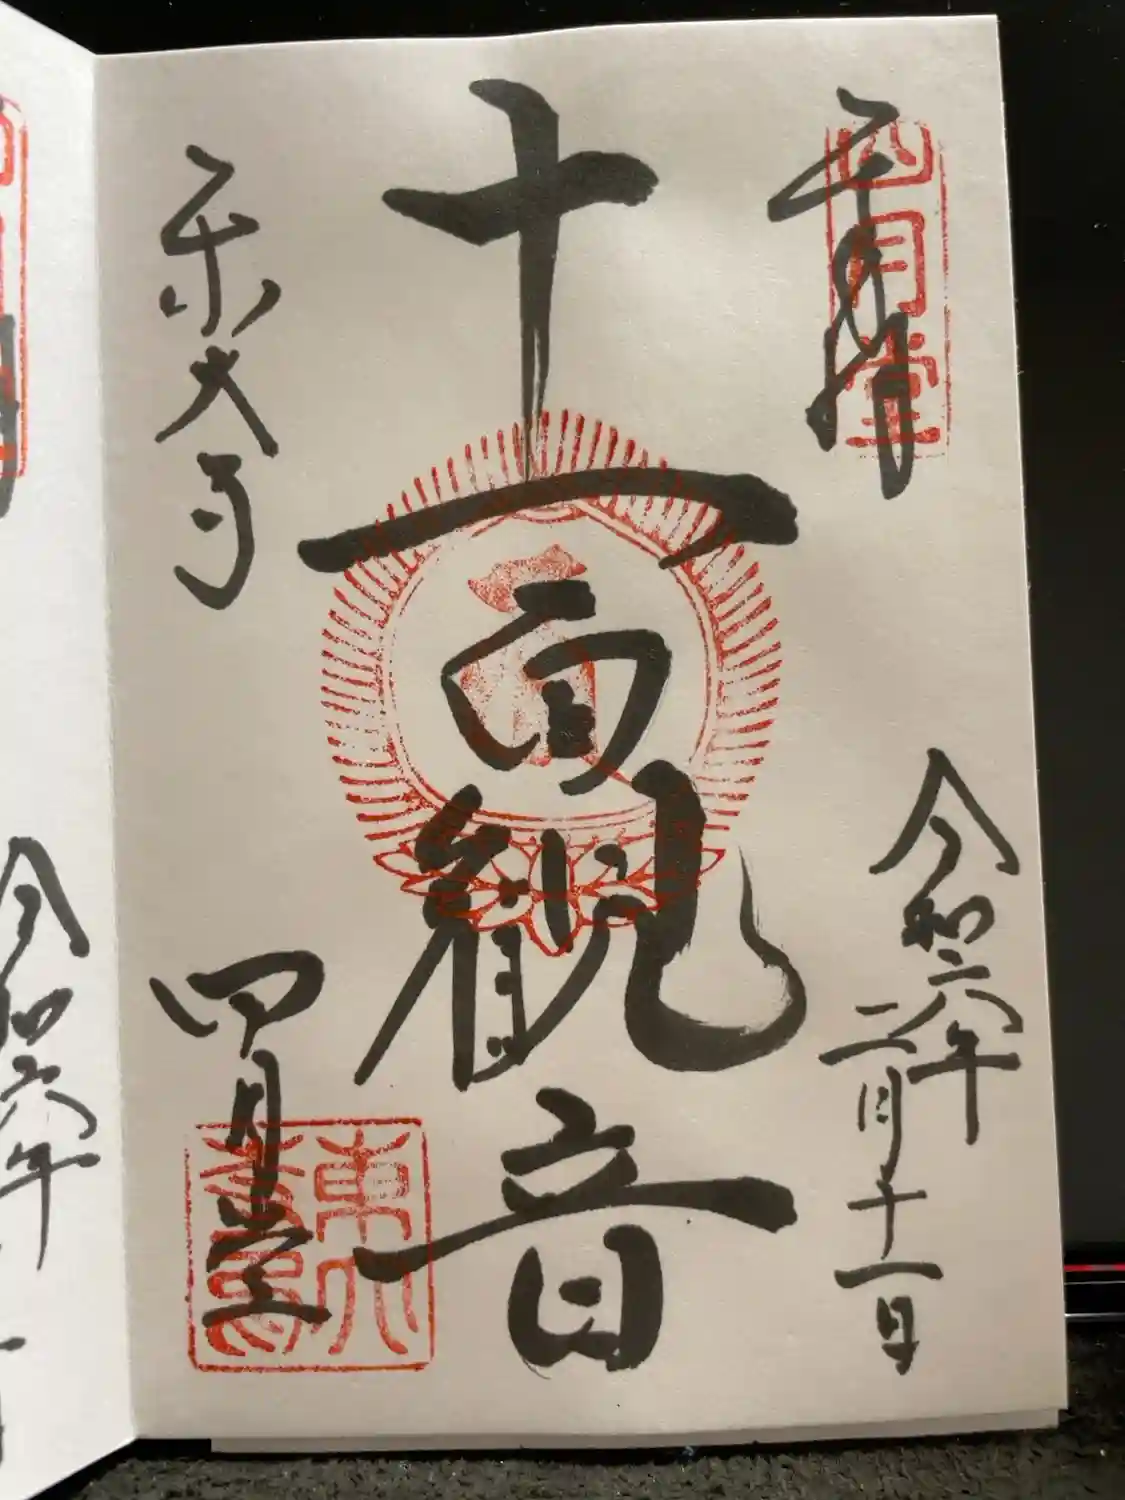 奉拝
四月堂
令和六年
二月十一日
十一面観音
東大寺
四月堂
東大寺
令和六年